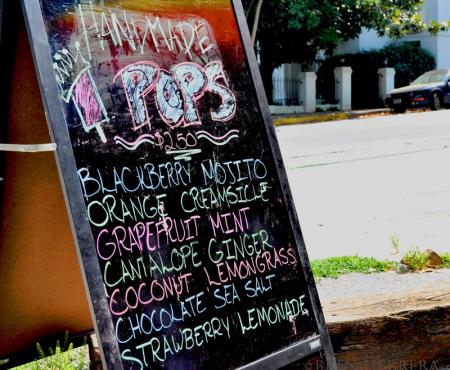 HANDMADE
POPS
$2.50
BLACKBERRY MOJITO
ORANGE CREAMSICLE
GRAPEFRUIT MINT
CANTALOPE GINGER
COCONUT LEMONGRASS
CHOCOLATE SEA SALT
STRAWBERRY LEMONADE